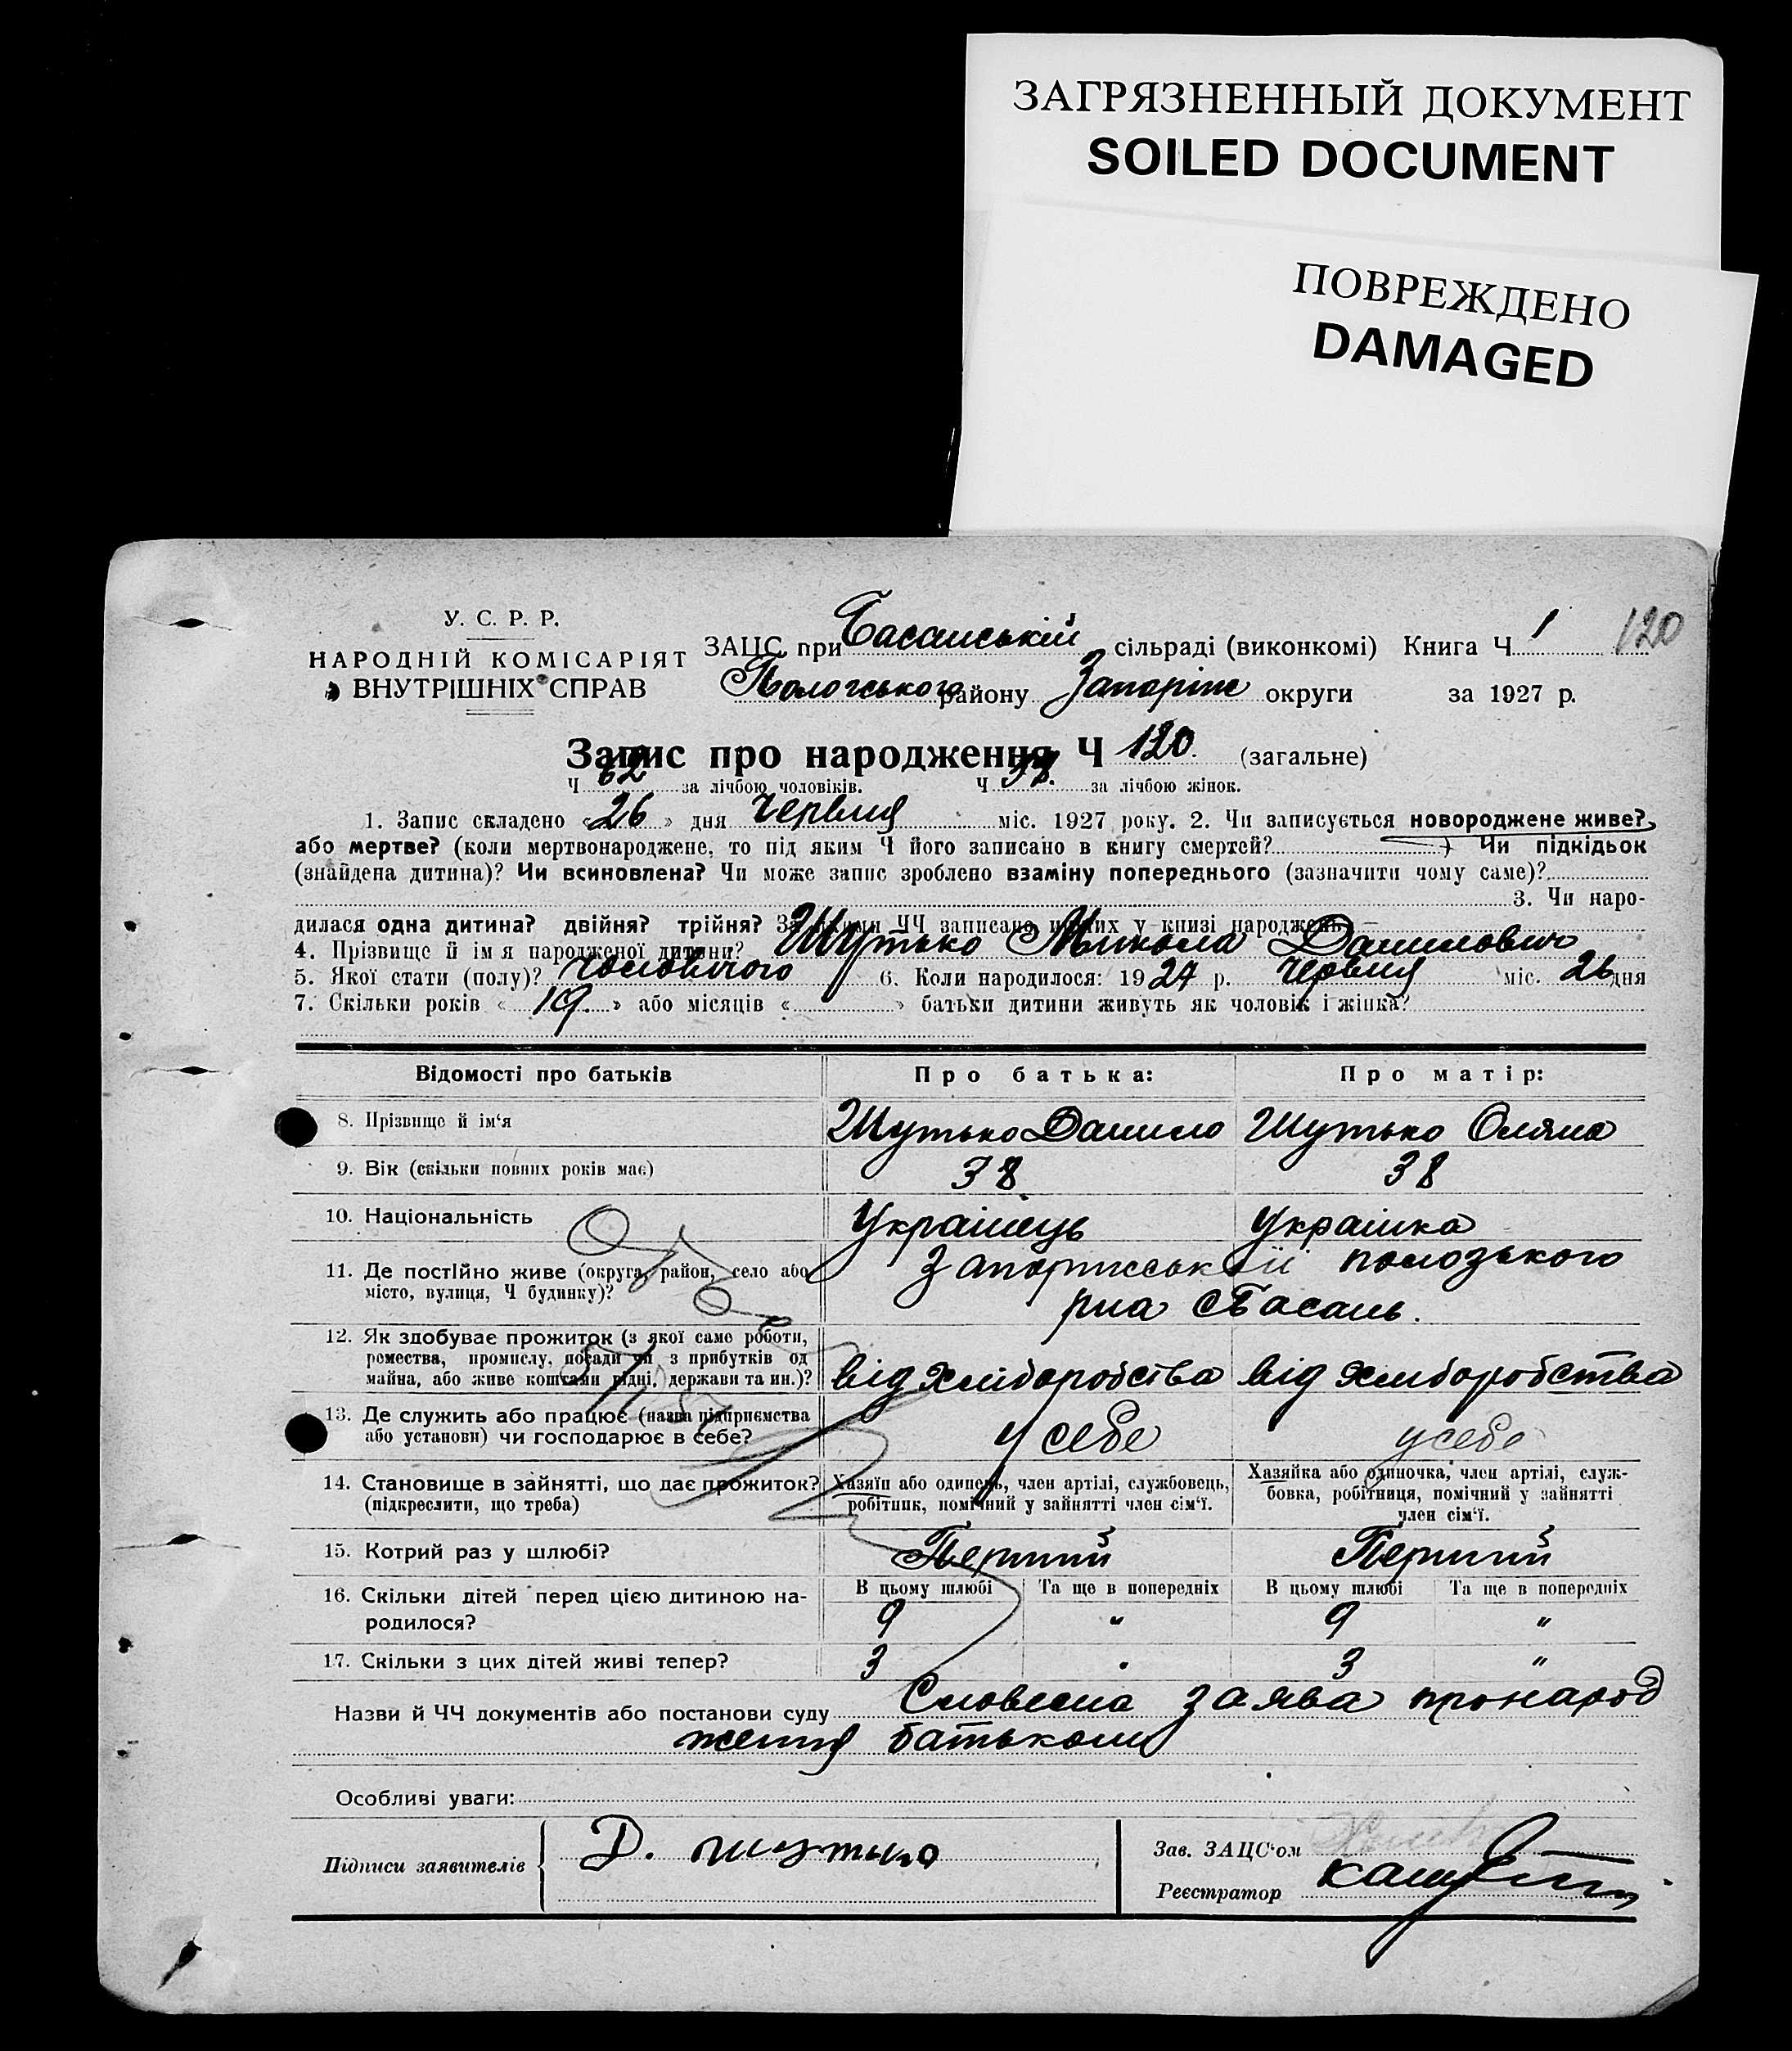 ЗАГРЯЗНЕННЫЙ ДОКУМЕНТ
SOILED DOCUMENT
ПОВРЕЖДЕНО
DAMAGED
У. С. Р. Р.
НАРОДНІЙ КОМІСАРІЯТ
ВНУТРІШНІХ СПРАВ
ЗАЦС при Басанській сільраді (виконкомі) Книга Ч 1 120
Пологського району Запоріж округи за 1927 р.
Запис про народження Ч 120 (загальне)
Ч 62 за лічбою чоловіків. Ч за лічбою жінок.
1. Запис складено « 26 » дня червня міс. 1927 року. 2. Чи записується новороджене живе?
або мертве? (коли мертвонароджене, то під яким Ч його записано в книгу смертей? ) Чи підкідьок
(знайдена дитина)? Чи всиновлена? Чи може запис зроблено взаміну попереднього (зазначити чому саме)?
3. Чи наро-
дилася одна дитина? двійня? трійня? За якими ЧЧ записано інших у книзі народжень
4. Прізвище й ім я народженої дитини? Шутько Микола Данилович
5. Якої стати (полу)? чоловічого 6. Коли народилося: 1927 р. червня міс. 26 дня
7. Скільки років « 19 » або місяців « » батьки дитини живуть як чоловік і жінка?
Відомості про батьків Про батька: Про матір:
8. Прізвище й ім‘я Шутько Данило Шутько Оляна
9. Вік (скільки повних років має) 38 38
10. Національність Українець Українка
11. Де постійно живе (округа, район, село або Запорижської пологського
місто, вулиця, Ч будинку)? рна с Басань.
12. Як здобуває прожиток (з якої саме роботи,
ремества, промислу, посади чи з прибутків од
майна, або живе коштами рідні, держави та ин.)? від хліборобства від хліборобства
13. Де служить або працює (назва підприємства
або установи) чи господарює в себе? у себе у себе
14. Становище в зайнятті, що дає прожиток? Хазяїн або одинець, член артілі, службовець, Хазяйка або одиночка, член артілі, служ-
(підкреслити, що треба) робітник, помічний у зайнятті член сім‘ї. бовка, робітниця, помічний у зайнятті
член сім‘ї.
15. Котрий раз у шлюбі? Перший Перший
16. Скільки дітей перед цією дитиною на- В цьому шлюбі Та ще в попередніх В цьому шлюбі Та ще в попередніх
родилося? 9 " 9 "
17. Скільки з цих дітей живі тепер? 3 " 3 "
Назви й ЧЧ документів або постанови суду Словесна заява про народ
ження батьком
Особливі уваги:
Підписи заявителів Д. шутько
Зав. ЗАЦС‘ом
Реєстратор